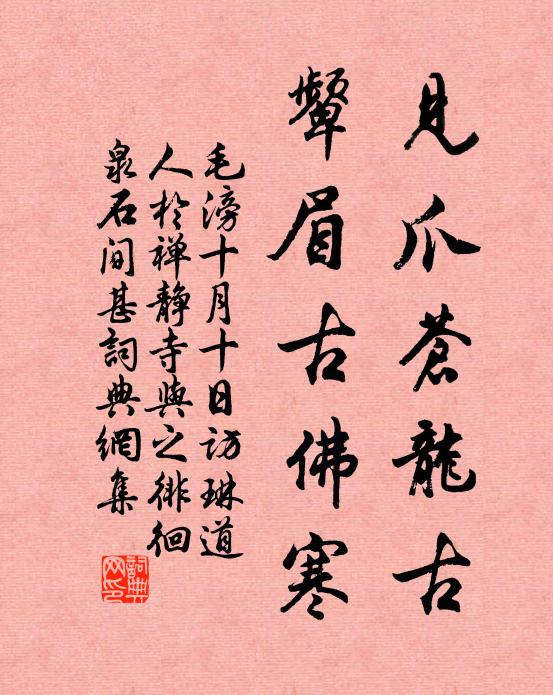 見爪蒼龍古
顰眉古佛寒
毛滂十月十日訪琳道
人於禅靜寺與之徘徊
泉石間甚詞典網集
詞典
网印